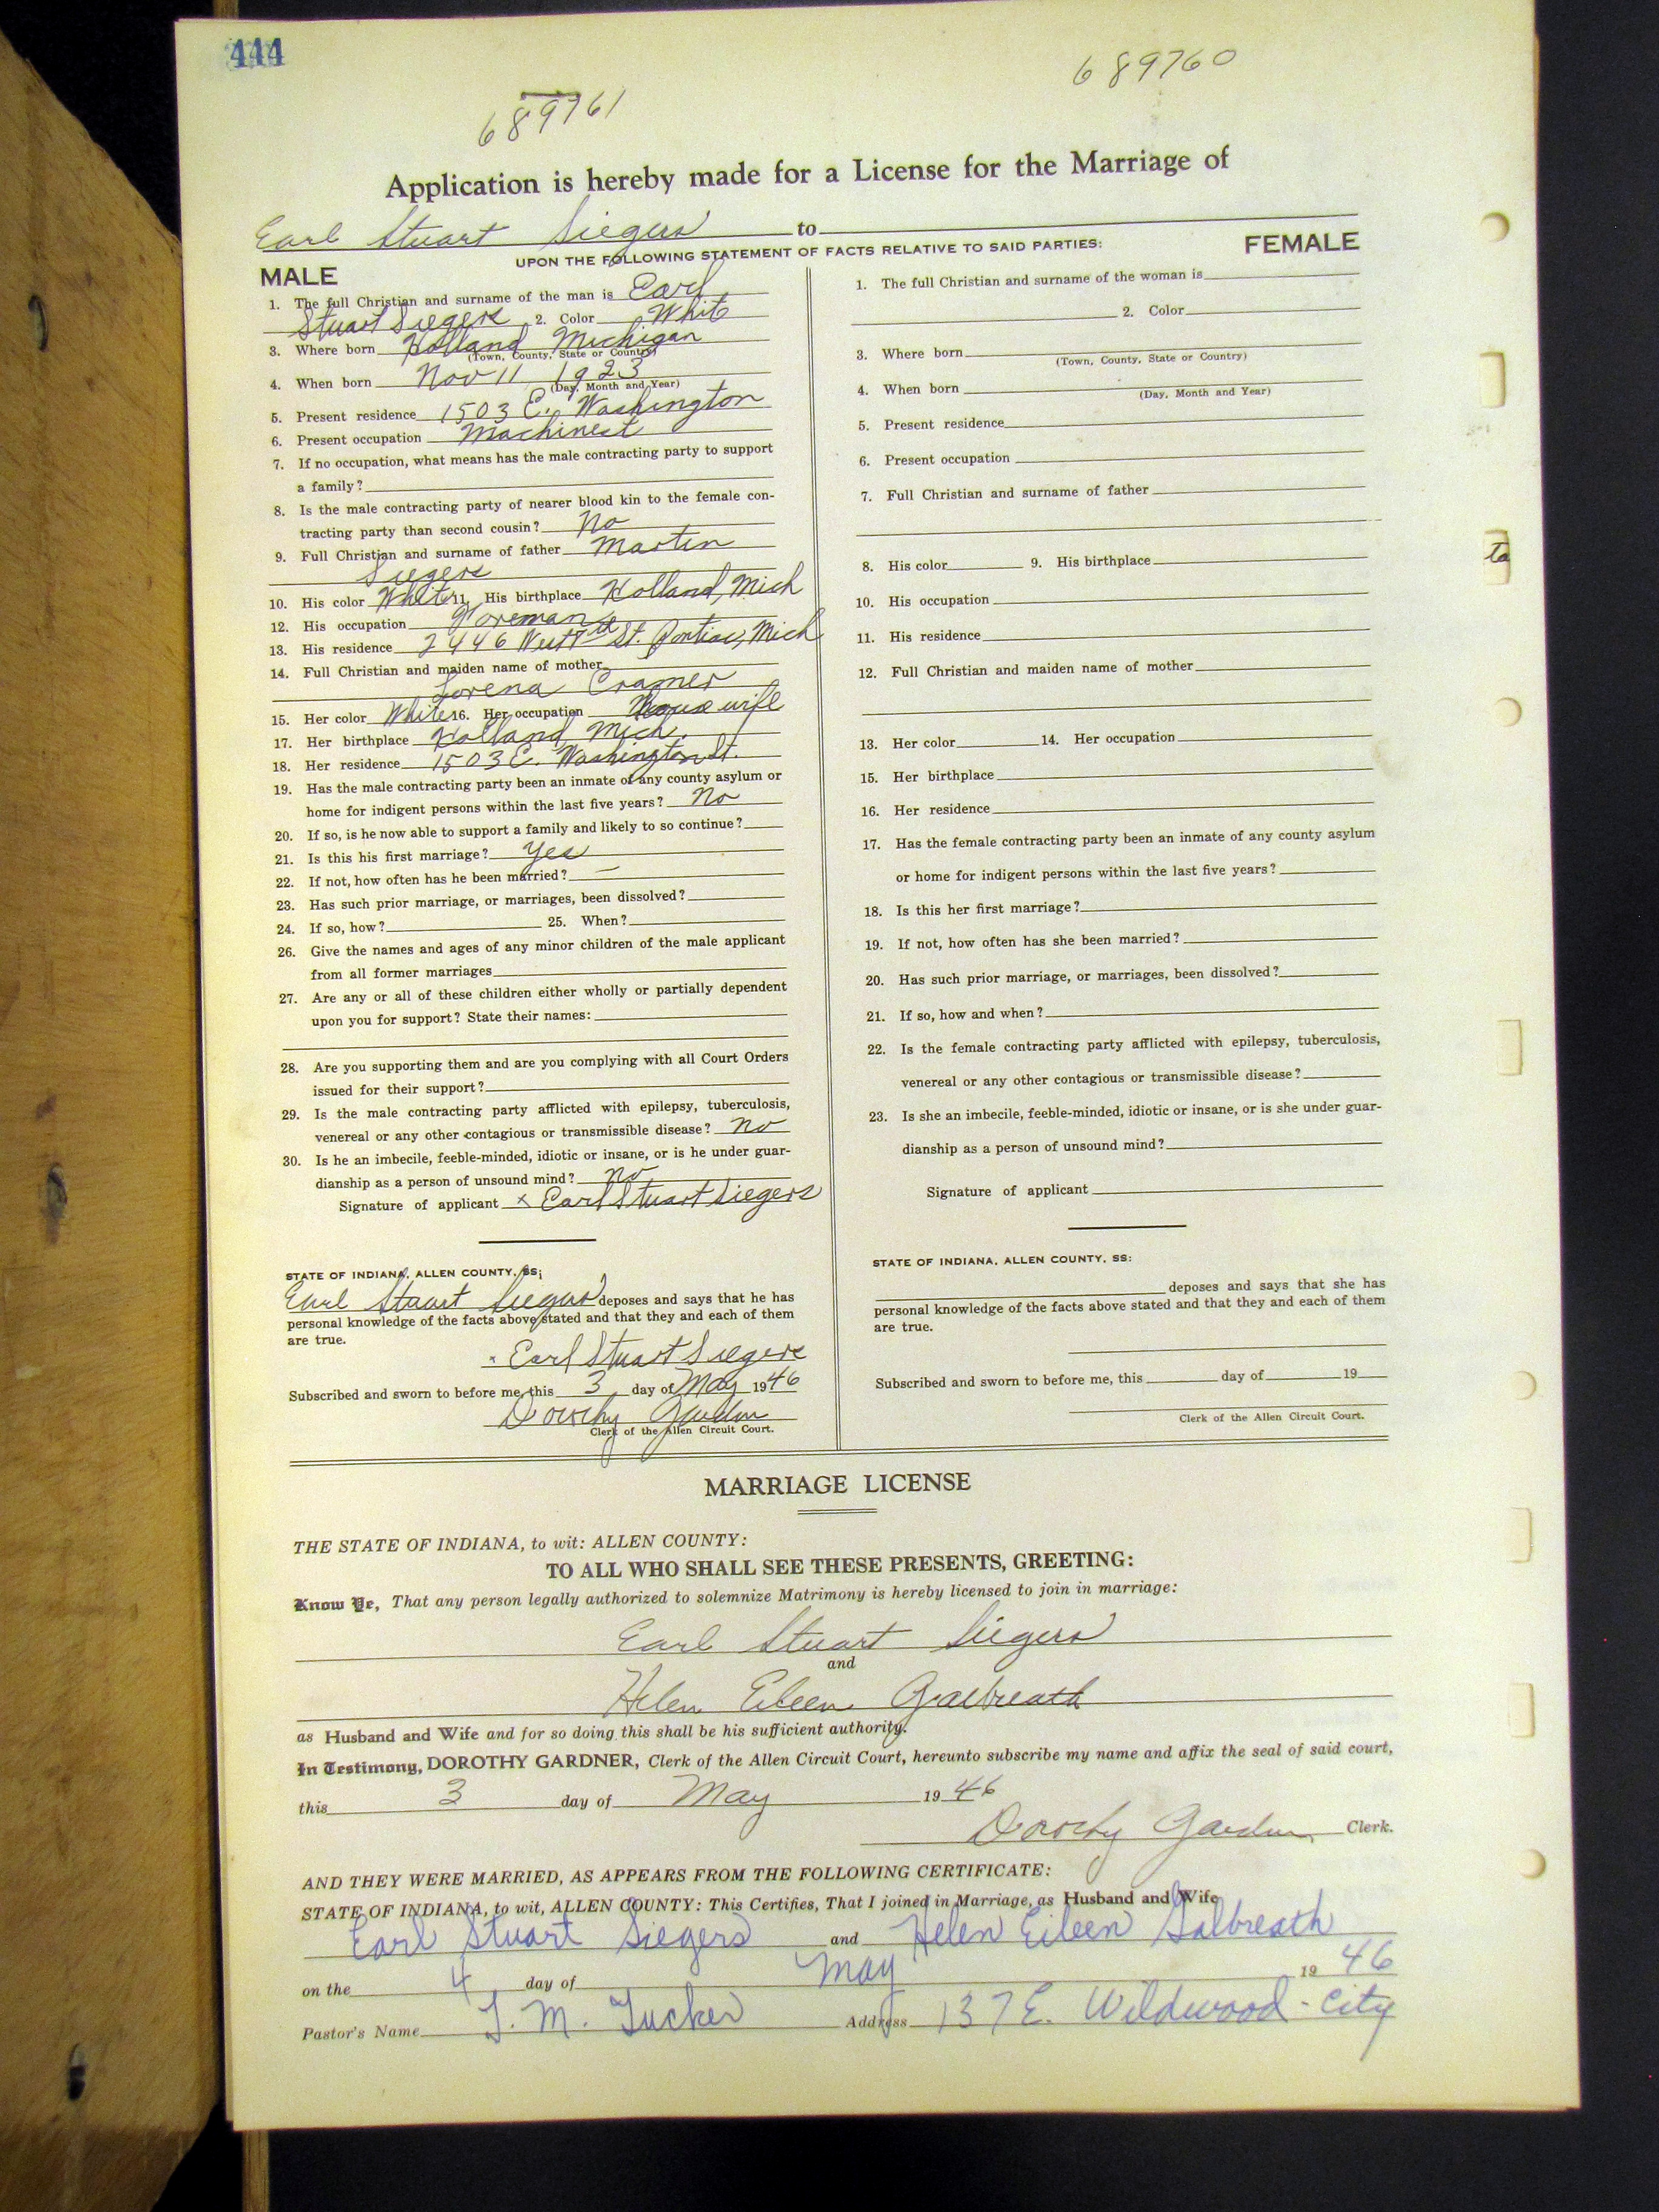 444
689760
689761
Application is hereby made for a License for the Marriage of
Earl Stuart Siegers to
UPON THE FOLLOWING STATEMENT OF FACTS RELATIVE TO SAID PARTIES:
MALE
1. The full Christian and surname of the man is Earl
Stuart Siegers 2. Color White
3. Where born Holland Michigan
(Town, County, State or Country)
4. When born Nov 11 1923
(Day, Month and Year)
5. Present residence 1503 E. Washington
6. Present occupation Machinest
7. If no occupation, what means has the male contracting party to support
a family?
8. Is the male contracting party of nearer blood kin to the female con-
tracting party than second cousin? No
9. Full Christian and surname of father Martin
Siegers
10. His color White 11. His birthplace Holland, Mich
12. His occupation Foreman
13. His residence 2446 St. Pontiac, Mich
14. Full Christian and maiden name of mother
Lorena Cramer
15. Her color White 16. Her occupation House wife
17. Her birthplace Holland, Mich.
18. Her residence 1503 E. Washington St.
19. Has the male contracting party been an inmate of any county asylum or
home for indigent persons within the last five years? No
20. If so, is he now able to support a family and likely to so continue?
21. Is this his first marriage? Yes
22. If not, how often has he been married? —
23. Has such prior marriage, or marriages, been dissolved?
24. If so, how? 25. When?
26. Give the names and ages of any minor children of the male applicant
from all former marriages
27. Are any or all of these children either wholly or partially dependent
upon you for support? State their names:
28. Are you supporting them and are you complying with all Court Orders
issued for their support?
29. Is the male contracting party afflicted with epilepsy, tuberculosis,
venereal or any other contagious or transmissible disease? No
30. Is he an imbecile, feeble-minded, idiotic or insane, or is he under guar-
dianship as a person of unsound mind? No
Signature of applicant x Earl Stuart Siegers
STATE OF INDIANA, ALLEN COUNTY, SS:
Earl Stuart Siegers deposes and says that he has
personal knowledge of the facts above stated and that they and each of them
are true.
x Earl Stuart Siegers
Subscribed and sworn to before me, this 3 day of May 1946
Dorothy Gardner
Clerk of the Allen Circuit Court.
FEMALE
1. The full Christian and surname of the woman is
2. Color
3. Where born
(Town, County, State or Country)
4. When born
(Day, Month and Year)
5. Present residence
6. Present occupation
7. Full Christian and surname of father
8. His color 9. His birthplace
10. His occupation
11. His residence
12. Full Christian and maiden name of mother
13. Her color 14. Her occupation
15. Her birthplace
16. Her residence
17. Has the female contracting party been an inmate of any county asylum
or home for indigent persons within the last five years?
18. Is this her first marriage?
19. If not, how often has she been married?
20. Has such prior marriage, or marriages, been dissolved?
21. If so, how and when?
22. Is the female contracting party afflicted with epilepsy, tuberculosis,
venereal or any other contagious or transmissible disease?
23. Is she an imbecile, feeble-minded, idiotic or insane, or is she under guar-
dianship as a person of unsound mind?
Signature of applicant
STATE OF INDIANA, ALLEN COUNTY, SS:
deposes and says that she has
personal knowledge of the facts above stated and that they and each of them
are true.
Subscribed and sworn to before me, this day of 19
Clerk of the Allen Circuit Court.
to
MARRIAGE LICENSE
THE STATE OF INDIANA, to wit: ALLEN COUNTY:
TO ALL WHO SHALL SEE THESE PRESENTS, GREETING:
Know Ye, That any person legally authorized to solemnize Matrimony is hereby licensed to join in marriage:
Earl Stuart Siegers
and
Helen Eileen Galbreath
as Husband and Wife and for so doing this shall be his sufficient authority.
In Testimony, DOROTHY GARDNER, Clerk of the Allen Circuit Court, hereunto subscribe my name and affix the seal of said court,
this 3 day of May 1946
Dorothy Gardner Clerk.
AND THEY WERE MARRIED, AS APPEARS FROM THE FOLLOWING CERTIFICATE:
STATE OF INDIANA, to wit, ALLEN COUNTY: This Certifies, That I joined in Marriage, as Husband and Wife
Earl Stuart Siegers and Helen Eileen Galbreath
on the 4 day of May 1946
Pastor's Name J. M. Tucker Address 137 E. Wildwood - City